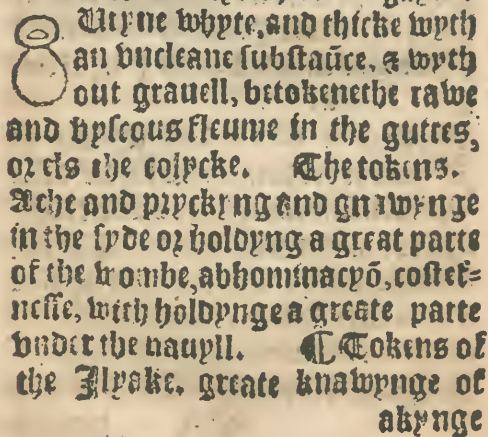 Uryne whyte, and thicke wyth
an vncleane substaūce, & wyth
out grauell, betokenethe rawe
and vyscous fleume in the guttes,
or els the colycke. ¶The tokens.
Ache and pryckyng and gnawynge
in the syde or holdyng a great parte
of the wombe, abhominacyō, costet=
nesse, with holdynge a greate parte
vnder the nauyll. ¶Tokens of
the Ilyake. greate knawynge of
akynge